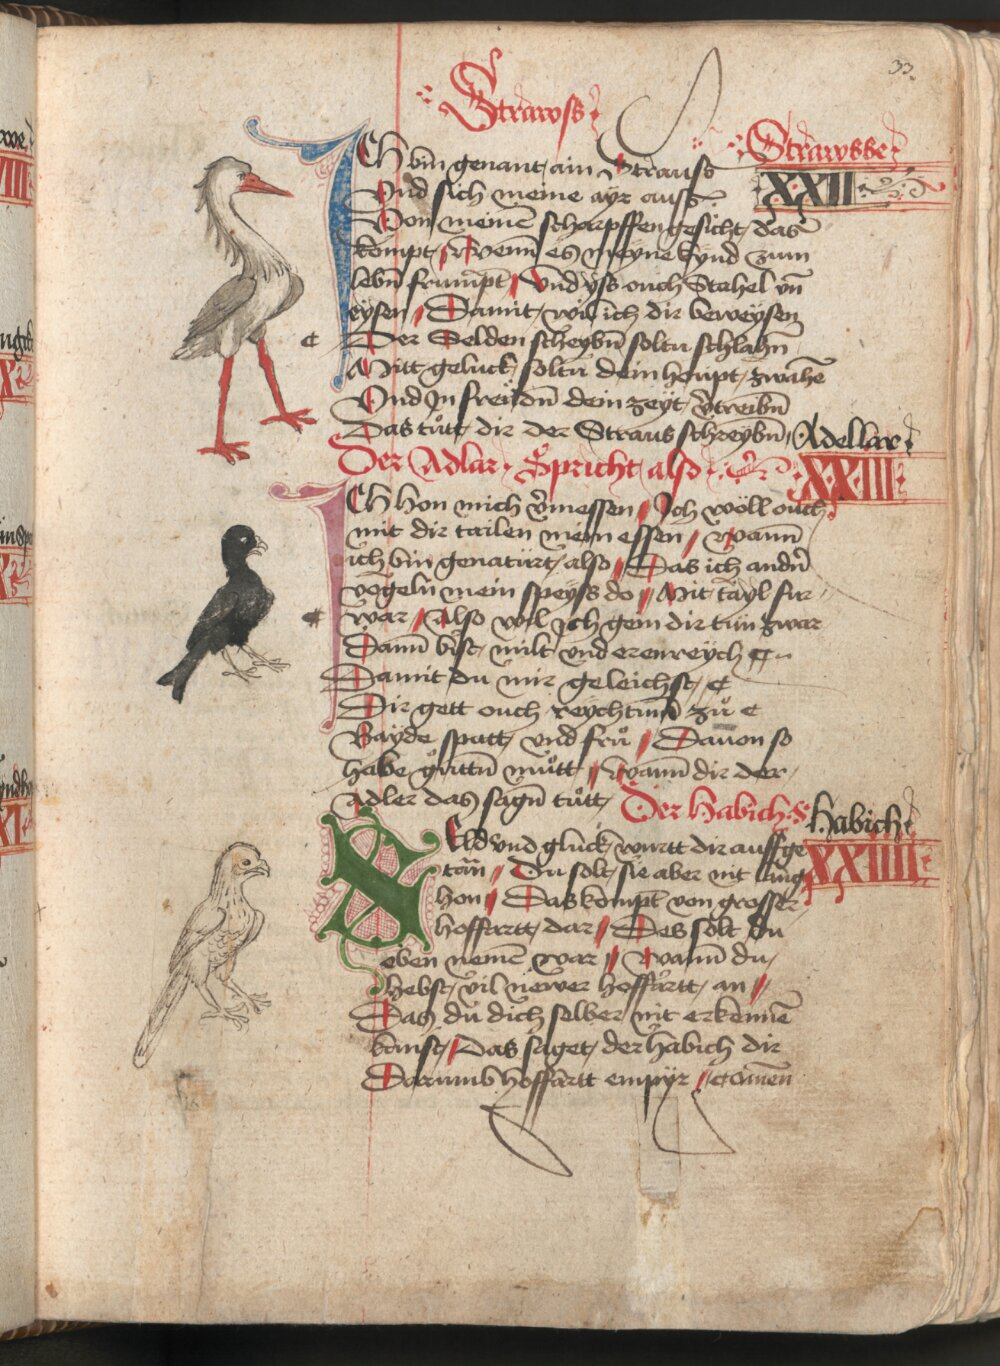 33
Strawss
Strawsse
XXII
ICh bin genant ain Strauss
Vnd sich meine ayr auss
Von meinē scharpffen gesicht das
kompt Wenn es meyne kynd zum
lebn̄ frumpt Vnd yss ouch Stahel vn̄
eysen Damit wil ich dir beweysen
Der Selden scheybn̄ soltu schlahn̄
Mitt geluck soltu dein houpt zwahē
Vnd In freudn̄ dein zeyt v̄treibn̄
Das tůtt dir der Straus schreybn̄
Adellar
XXIII
Der Adlar Spricht also
ICh hon mich v̄messen Ich wöll ouch
mit dir tailen mein essen Wann̄
ich bin genatürt also Das ich andn̄
vögeln mein speyss do Mit tayl fur
war Also wil ich gern dir tün zwar
Dann̄ bist milt vnd erenreych
Damit du mir geleichst
Dir gett ouch reychtum̄ zů
Bayde spatt vnd frů Dauon so
habe gůttn̄ můtt Wann̄ dir der
Adler das sagn̄ tůtt
Der Habich
Habich
XXIIII
SEld vnd gluck wurtt dir auffge
tān Du solt sie aber nit lang
hon Das kompt von grosser
hoffartt dar Des solt du
eben nemē war Wann̄ du
hebst vil niewer hoffartt an
Das du dich selber nit erkennē
kanst Das saget der habich dir
Darumb hoffartt empyr Amen